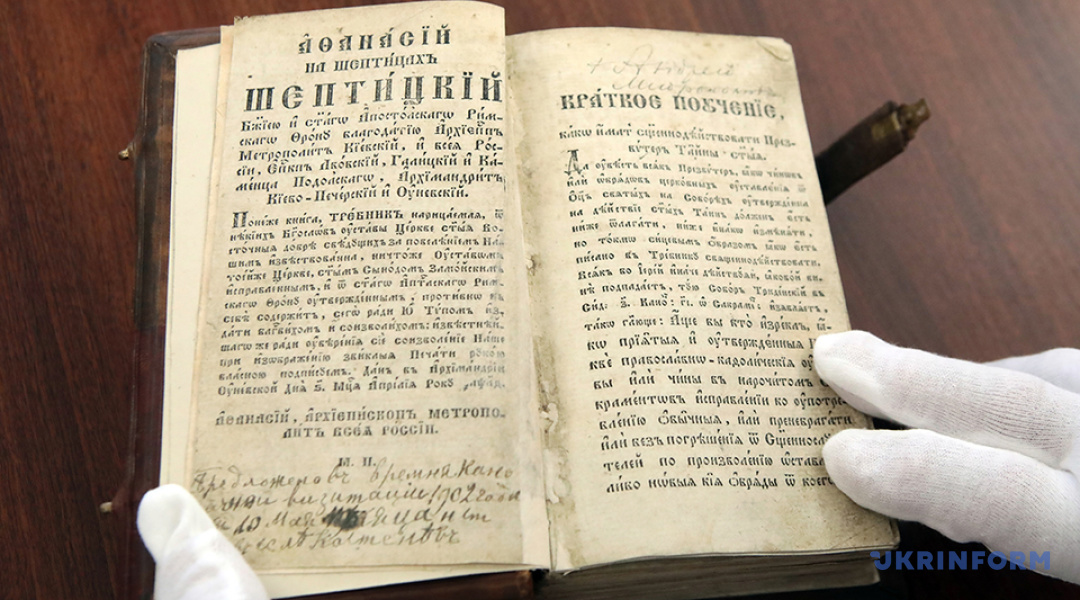 АѲАНАСІЙ
НА ШЕПТИ́ЦАХЪ
ШЕПТИ́ЦКІЙ
Бж҃їею и҆ ст҃а́гѡ А҆по́столскагѡ Ри́м-
скагѡ Ѳро́нꙋ благода́тїю А҆рхїеп҃пъ
Митрополи́тъ Кі́евскїй, и҆ всеѧ̀ Рос-
сі́и, Е҆п҃кпъ Лво́вскїй, Га́лицкїй и҆ Ка-
ме́нца Подо́лскагѡ, А҆рхїмандри́тъ
Кі́ево-Пече́рскїй и҆ Оу҆не́вскїй.
Поне́же кни́га, ТРЕ́БНИКЪ нарица́емаѧ, ѿ
нѣ́кїихъ Бг҃осло́въ оу҆ста́вы Цр҃кве ст҃ы́ѧ Во-
сто́чныѧ до́брѣ свѣ́дꙋщихъ за повелѣ́нїемъ На́-
шимъ и҆звѣ́ствованна, ничто́же Оу҆ста́вѡмъ
тоѧ́же Цр҃кве, ст҃ы́мъ Сѵно́домъ Замо́йскимъ
и҆спра́вленнымъ, и҆ ѿ ст҃а́гѡ А҆пⷭ҇лскагѡ Ри́м-
скагѡ Ѳро́нꙋ оу҆твержде́ннымъ, проти́вно въ
себѣ̀ содержи́тъ, сегѡ̀ ра́ди Ю҆ Ту́помъ и҆з-
да́ти бл҃гви́хомъ и҆ соизво́лихомъ: и҆звѣ́стнѣй-
шагѡ же ра́ди оу҆вѣре́нїѧ сїѐ соизволе́нїе На́ше
при и҆з̾ѡбраже́нїю звы́клыѧ Печа́ти рꙋко́ю
вла́сною подпи́сꙋемъ. Да́нъ въ А҆рхїмандрі́и
Оу҆не́вской Дн҃ѧ
А҆ѳана́сїй, А҆рхїепі́скопъ Метропо-
ли́тъ всеѧ̀ Россі́и.
М. П.
Предложенъ времня Кано
визитации 1902 года
10 Мая
+ Андрей
Митрополитъ
КРА́ТКОЕ ПОУЧЕ́НЇЕ,
ка́кѡ и҆́мать сщ҃еннодѣ́йствовати Презъ-
ву́теръ Та̑йны ст҃ы́ѧ.
Да оу҆вѣ́сть всѧ́къ Презву́теръ, ꙗ҆́кѡ чинѡ́въ
и҆лѝ ѡ҆брѧ́дѡвъ церко́вныхъ оу҆ставле́нїѧ ѿ
Оц҃ъ свѧты́хъ на Собо́рѣхъ оу҆твержде́нна
на дѣ́йствїе ст҃ы́хъ Та́инъ до́лженъ є҆́сть
нижѐ ѿлага́ти, нижѐ и҆на́кѡ и҆змѣнѧ́ти,
но то́кмѡ си́цевымъ ѻ҆́бразомъ ꙗ҆́кѡ є҆́сть
пи́сано въ Тре́бникꙋ свѧщеннодѣ́йствовати.
Всѧ́къ бо І҆ере́й и҆на́че дѣ́йствꙋѧй, ꙗ҆ково́й ви-
нѣ̀ подпада́етъ, то́ю Собо́ръ Триде́нскїй въ
Сид: з҃. Кано́: г҃і. ѡ҆ Сакра́м: и҆з̾ѧвлѧ́етъ,
та́кѡ гл҃юще: А҆́ще бы кто̀ и҆зре́клъ, ꙗ҆́-
кѡ прїѧ̑тыѧ и҆ оу҆твержде́нныѧ
кве правосла́вно-каѳоли́ческїѧ
бы и҆лѝ чи́ны въ нарочи́томъ С
краме́нтѡвъ и҆справле́нїи ко оу҆потре-
бле́нїю ѡ҆бы́чныѧ, и҆лѝ пренебрега́ти
и҆лѝ без̾ погрѣше́нїѧ ѿ Сщ҃енносл
те́лей по произволе́нїю ѡ҆ставл
ли́бо нѡ́выѧ кі́ѧ Ѻ҆брѧ́ды ѿ коегѡ
UKRINFORM